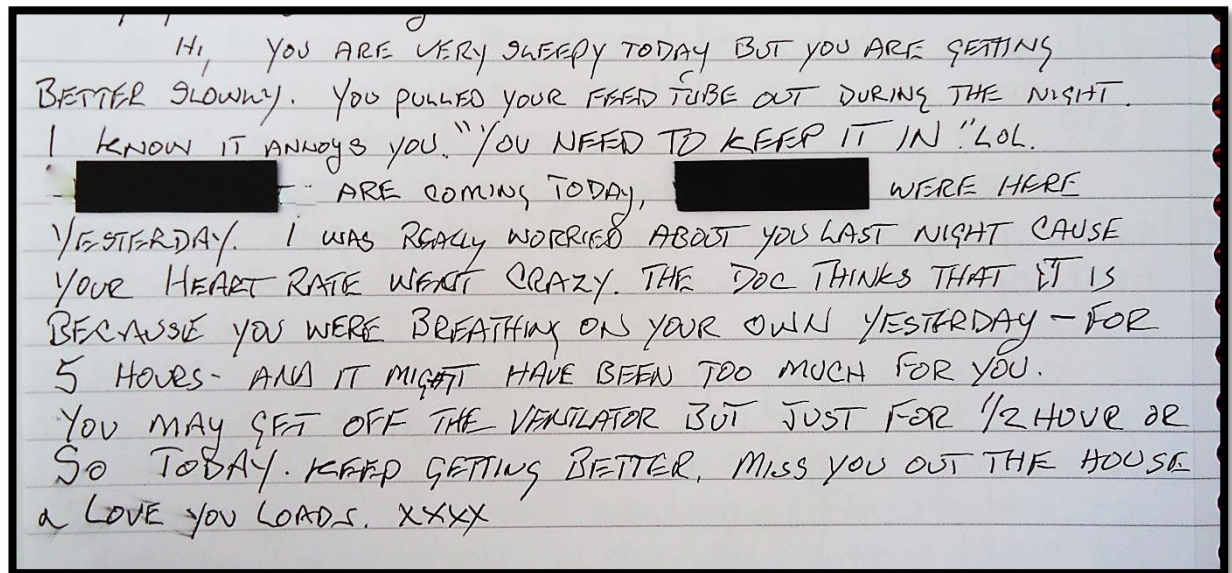 HI, YOU ARE VERY SLEEPY TODAY BUT YOU ARE GETTING
BETTER SLOWLY. YOU PULLED YOUR FEED TUBE OUT DURING THE NIGHT.
I KNOW IT ANNOYS YOU. "YOU NEED TO KEEP IT IN". LOL.
ARE COMING TODAY, WERE HERE
YESTERDAY. I WAS REALLY WORRIED ABOUT YOU LAST NIGHT CAUSE
YOUR HEART RATE WENT CRAZY. THE DOC THINKS THAT IT IS
BECAUSE YOU WERE BREATHING ON YOUR OWN YESTERDAY - FOR
5 HOURS - AND IT MIGHT HAVE BEEN TOO MUCH FOR YOU.
YOU MAY GET OFF THE VENTILATOR BUT JUST FOR 1/2 HOUR OR
SO TODAY. KEEP GETTING BETTER, MISS YOU OUT THE HOUSE
& LOVE YOU LOADS. XXXX